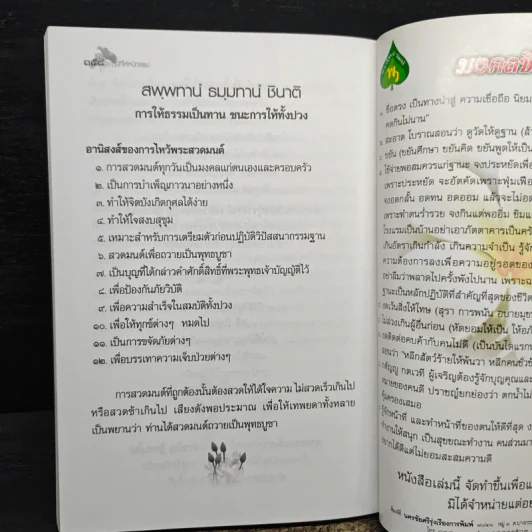 ๑๕๘
สพฺพทานํ ธมฺมทานํ ชินาติ
การให้ธรรมเป็นทาน ชนะการให้ทั้งปวง
อานิสงส์ของการไหว้พระสวดมนต์
๑. การสวดมนต์ทุกวันเป็นมงคลแก่ตนเองและครอบครัว
๒. เป็นการบำเพ็ญภาวนาอย่างหนึ่ง
๓. ทำให้จิตบังเกิดกุศลได้ง่าย
๔. ทำให้ใจสงบสุขุม
๕. เหมาะสำหรับการเตรียมตัวก่อนปฏิบัติวิปัสสนากรรมฐาน
๖. สวดมนต์เพื่อถวายเป็นพุทธบูชา
๗. เป็นบุญที่ได้กล่าวคำศักดิ์สิทธิ์ที่พระพุทธเจ้าบัญญัติไว้
๘. เพื่อป้องกันภัยวิบัติ
๙. เพื่อความสำเร็จในสมบัติทั้งปวง
๑๐. เพื่อให้ทุกข์ต่างๆ หมดไป
๑๑. เป็นการขจัดภัยต่างๆ
๑๒. เพื่อบรรเทาความเจ็บป่วยต่างๆ
การสวดมนต์ที่ถูกต้องนั้นต้องสวดให้ได้ใจความ ไม่สวดเร็วเกินไป
หรือสวดช้าเกินไป เสียงดังพอประมาณ เพื่อให้เทพยดาทั้งหลาย
เป็นพยานว่า ท่านได้สวดมนต์ถวายเป็นพุทธบูชา
ซื่อตรง เป็นทางนำสู่ ความเชื่อถือ นิยม
คดกินไม่นาน"
สะอาด โบราณสอนว่า ดูวัดให้ดูฐาน
ขยัน (ขยันศึกษา ขยันคิด ขยันพูดให้เป็น
ใช้จ่ายพอสมควรแก่ฐานะ จงประหยัดเพื่อ
เพราะประหยัด จะอัตคัดเพราะฟุ่มเฟือย
จงอดกลั้น อดทน อดออม แล้วจะไม่อด
เพราะทำตนร่ำรวย จงกินแต่พออิ่ม
โรงแรมเป็นบ้านอย่าเอาภัตตาคารเป็นครัว
เกินอัตราเกินกำลัง เกินความจำเป็น รู้จัก
ความต้องการลงเพื่อความอยู่รอดของ
อย่าลืมว่าพลาดไปครั้งพังไปนาน
ฐานะเป็นหลักปฏิบัติที่สำคัญที่สุดของชีวิต
งดเว้นสิ่งให้โทษ (สุรา การพนัน อบายมุข
ไม่ล่วงเกินผู้อื่นก่อน
งดติดต่อคบค้ากับคนไม่ดี
สอนว่า "หลีกสัตว์ร้ายให้พ้นวา หลีกคนชั่ว
กตเวที ผู้เจริญต้องรู้จักบุญคุณและ
หมายของคนดี ปราชญ์ยกย่องว่า ตกน้ำไม่
คุ้มครองเสมอ
รู้จักหน้าที่ และทำหน้าที่ของตนให้ดีที่สุด
ทำงานให้สนุก เป็นสุขขณะทำงาน คนส่วนมา
อยากได้ดีแต่ไม่ยอมสะสมความดี
หนังสือเล่มนี้ จัดทำขึ้นเพื่อแ
มิได้จำหน่ายแต่อย